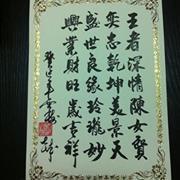 王者深情陳女賢
奕志乾坤美景天
盛世良緣玲瓏妙
興業財旺歲吉祥
癸巳年